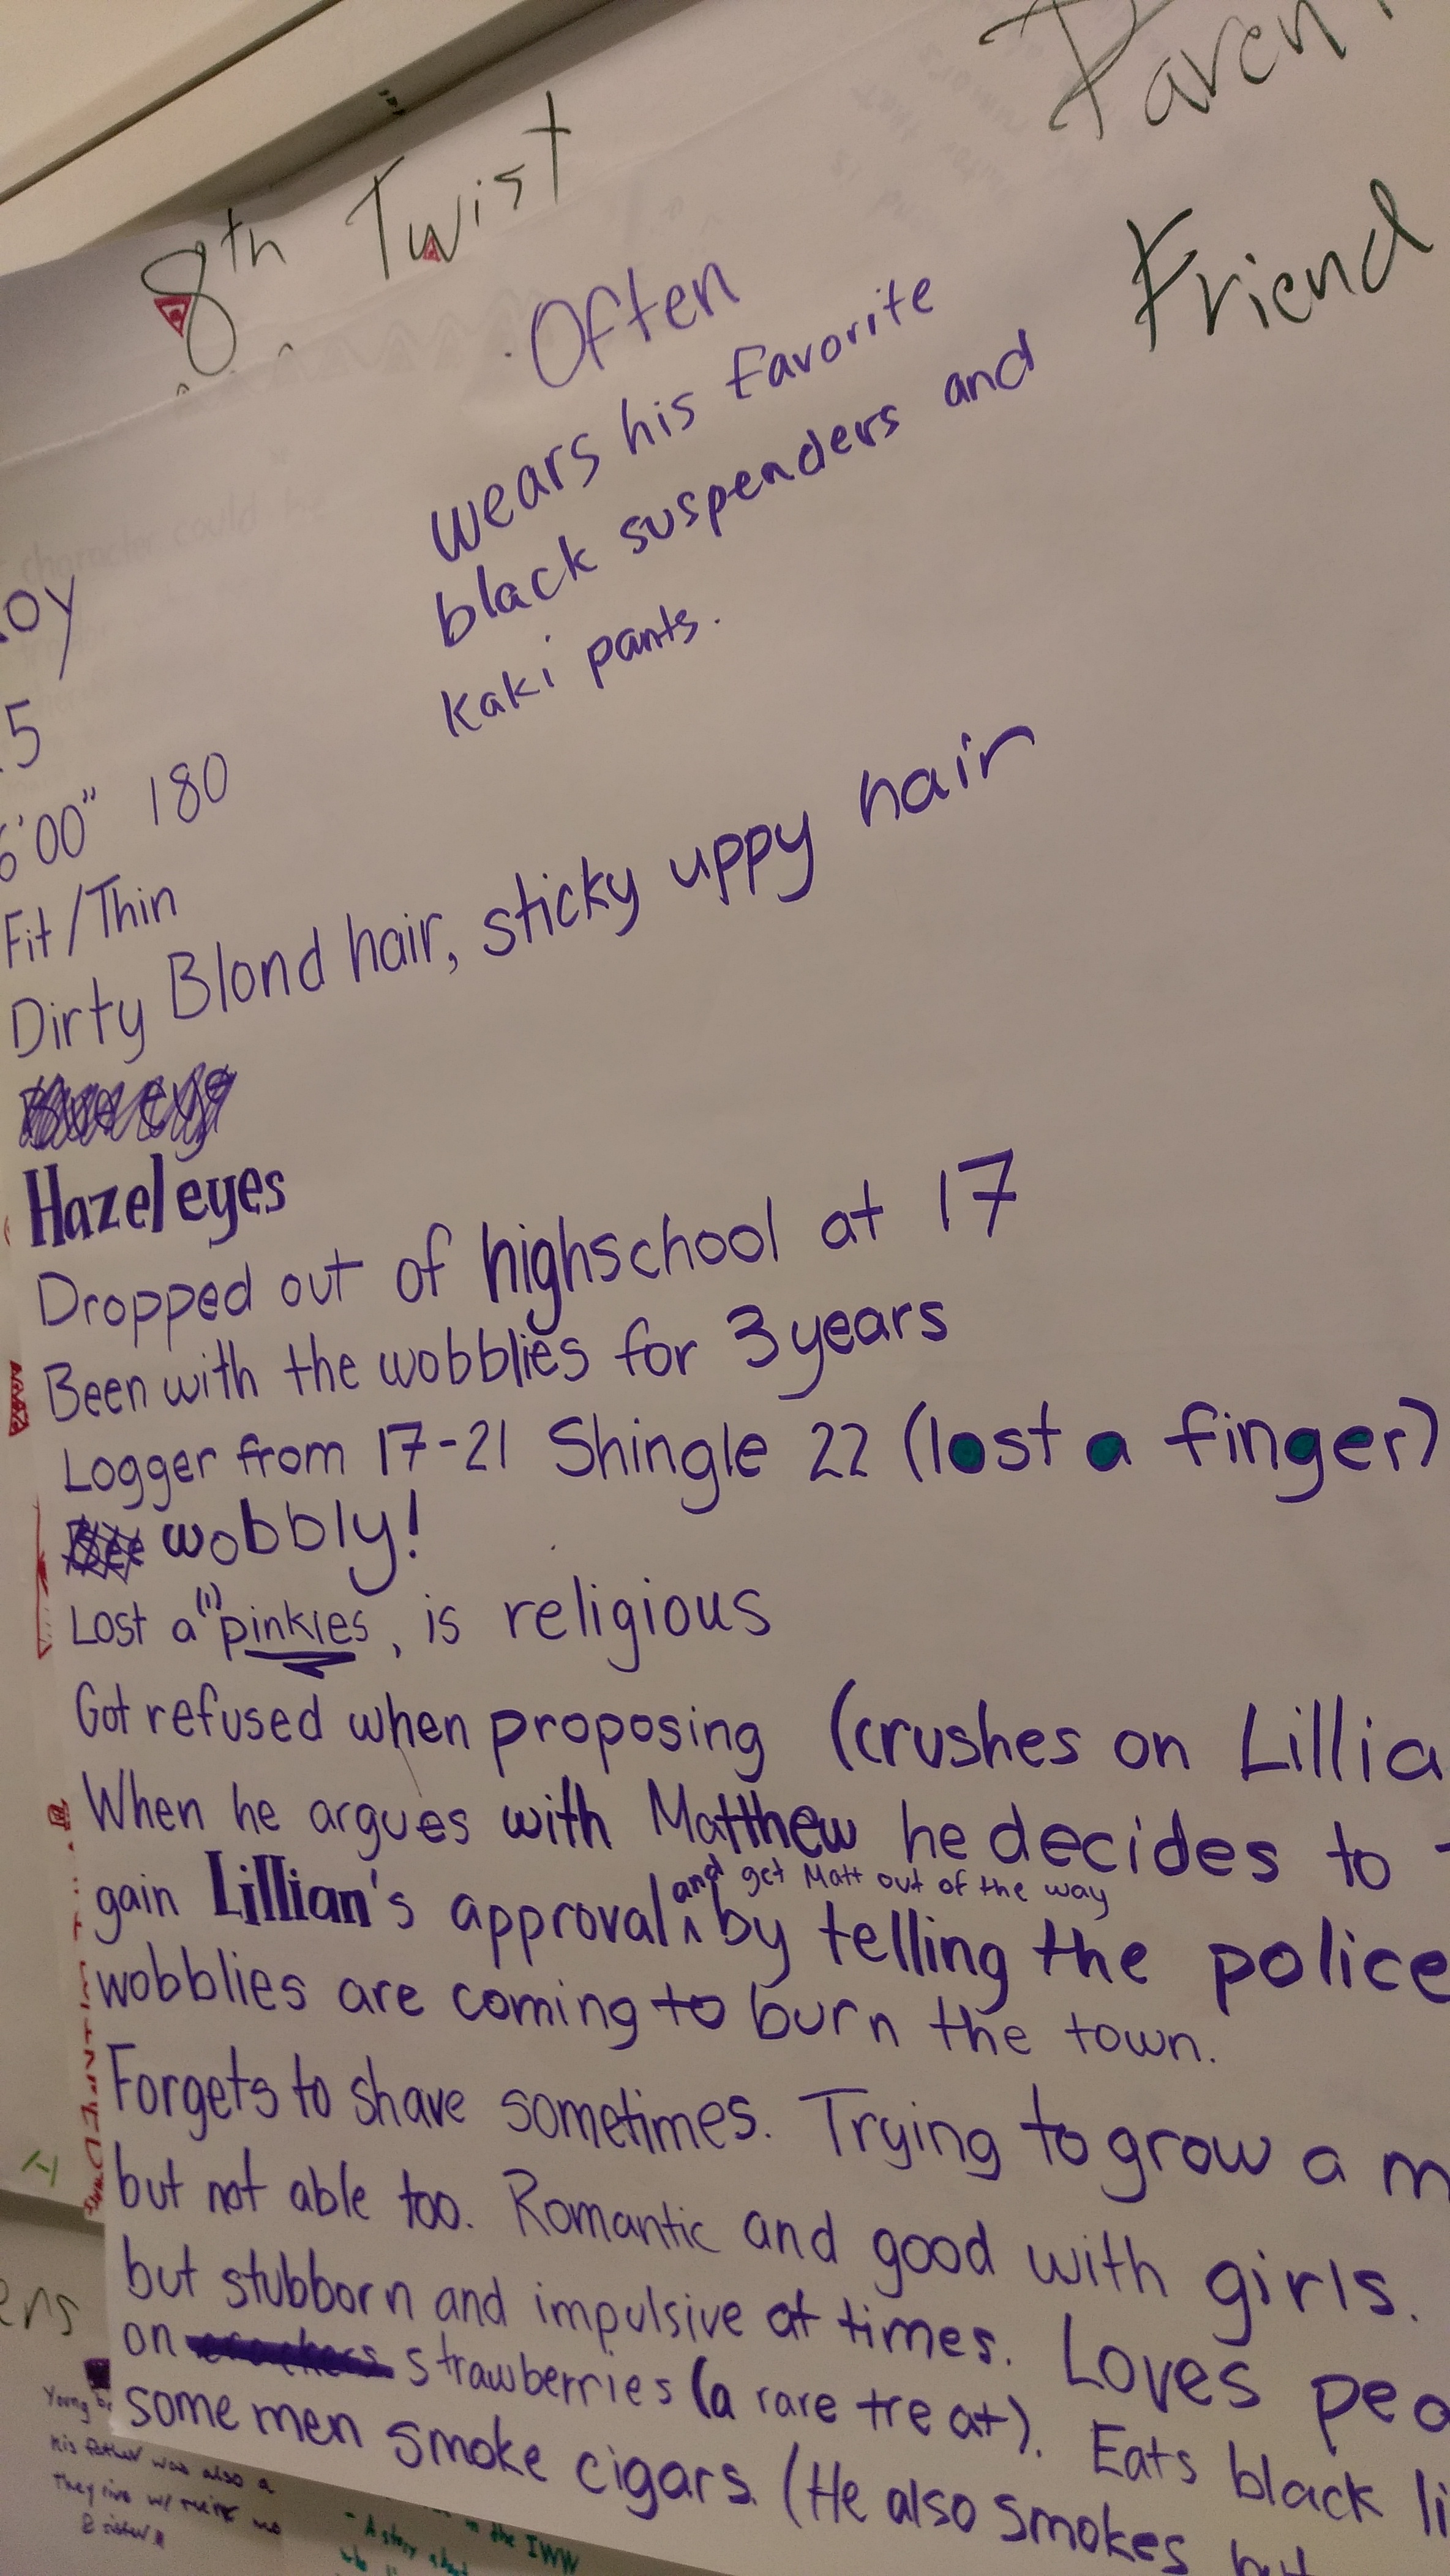 8th Twist
Friend
Often
wears his favorite
black suspenders and
kaki pants.
oy
5
6'00" 180
Fit/Thin
Dirty Blond hair, sticky uppy hair
Hazel eyes
Dropped out of highschool at 17
Been with the wobblies for 3 years
Logger from 17-21 Shingle 22 (lost a finger)
wobbly!
Lost a (1) pinkies, is religious
Got refused when proposing (crushes on Lillia
When he argues with Matthew he decides to
and get Matt out of the way
gain Lillian's approval ^ by telling the police
wobblies are coming to burn the town.
Forgets to shave sometimes. Trying to grow a m
but not able too. Romantic and good with girls.
but stubborn and impulsive at times. Loves pea
on strawberries (a rare treat). Eats black li
some men smoke cigars. (He also smokes but
ens
Young
his father was also a
in the IWW
- A story